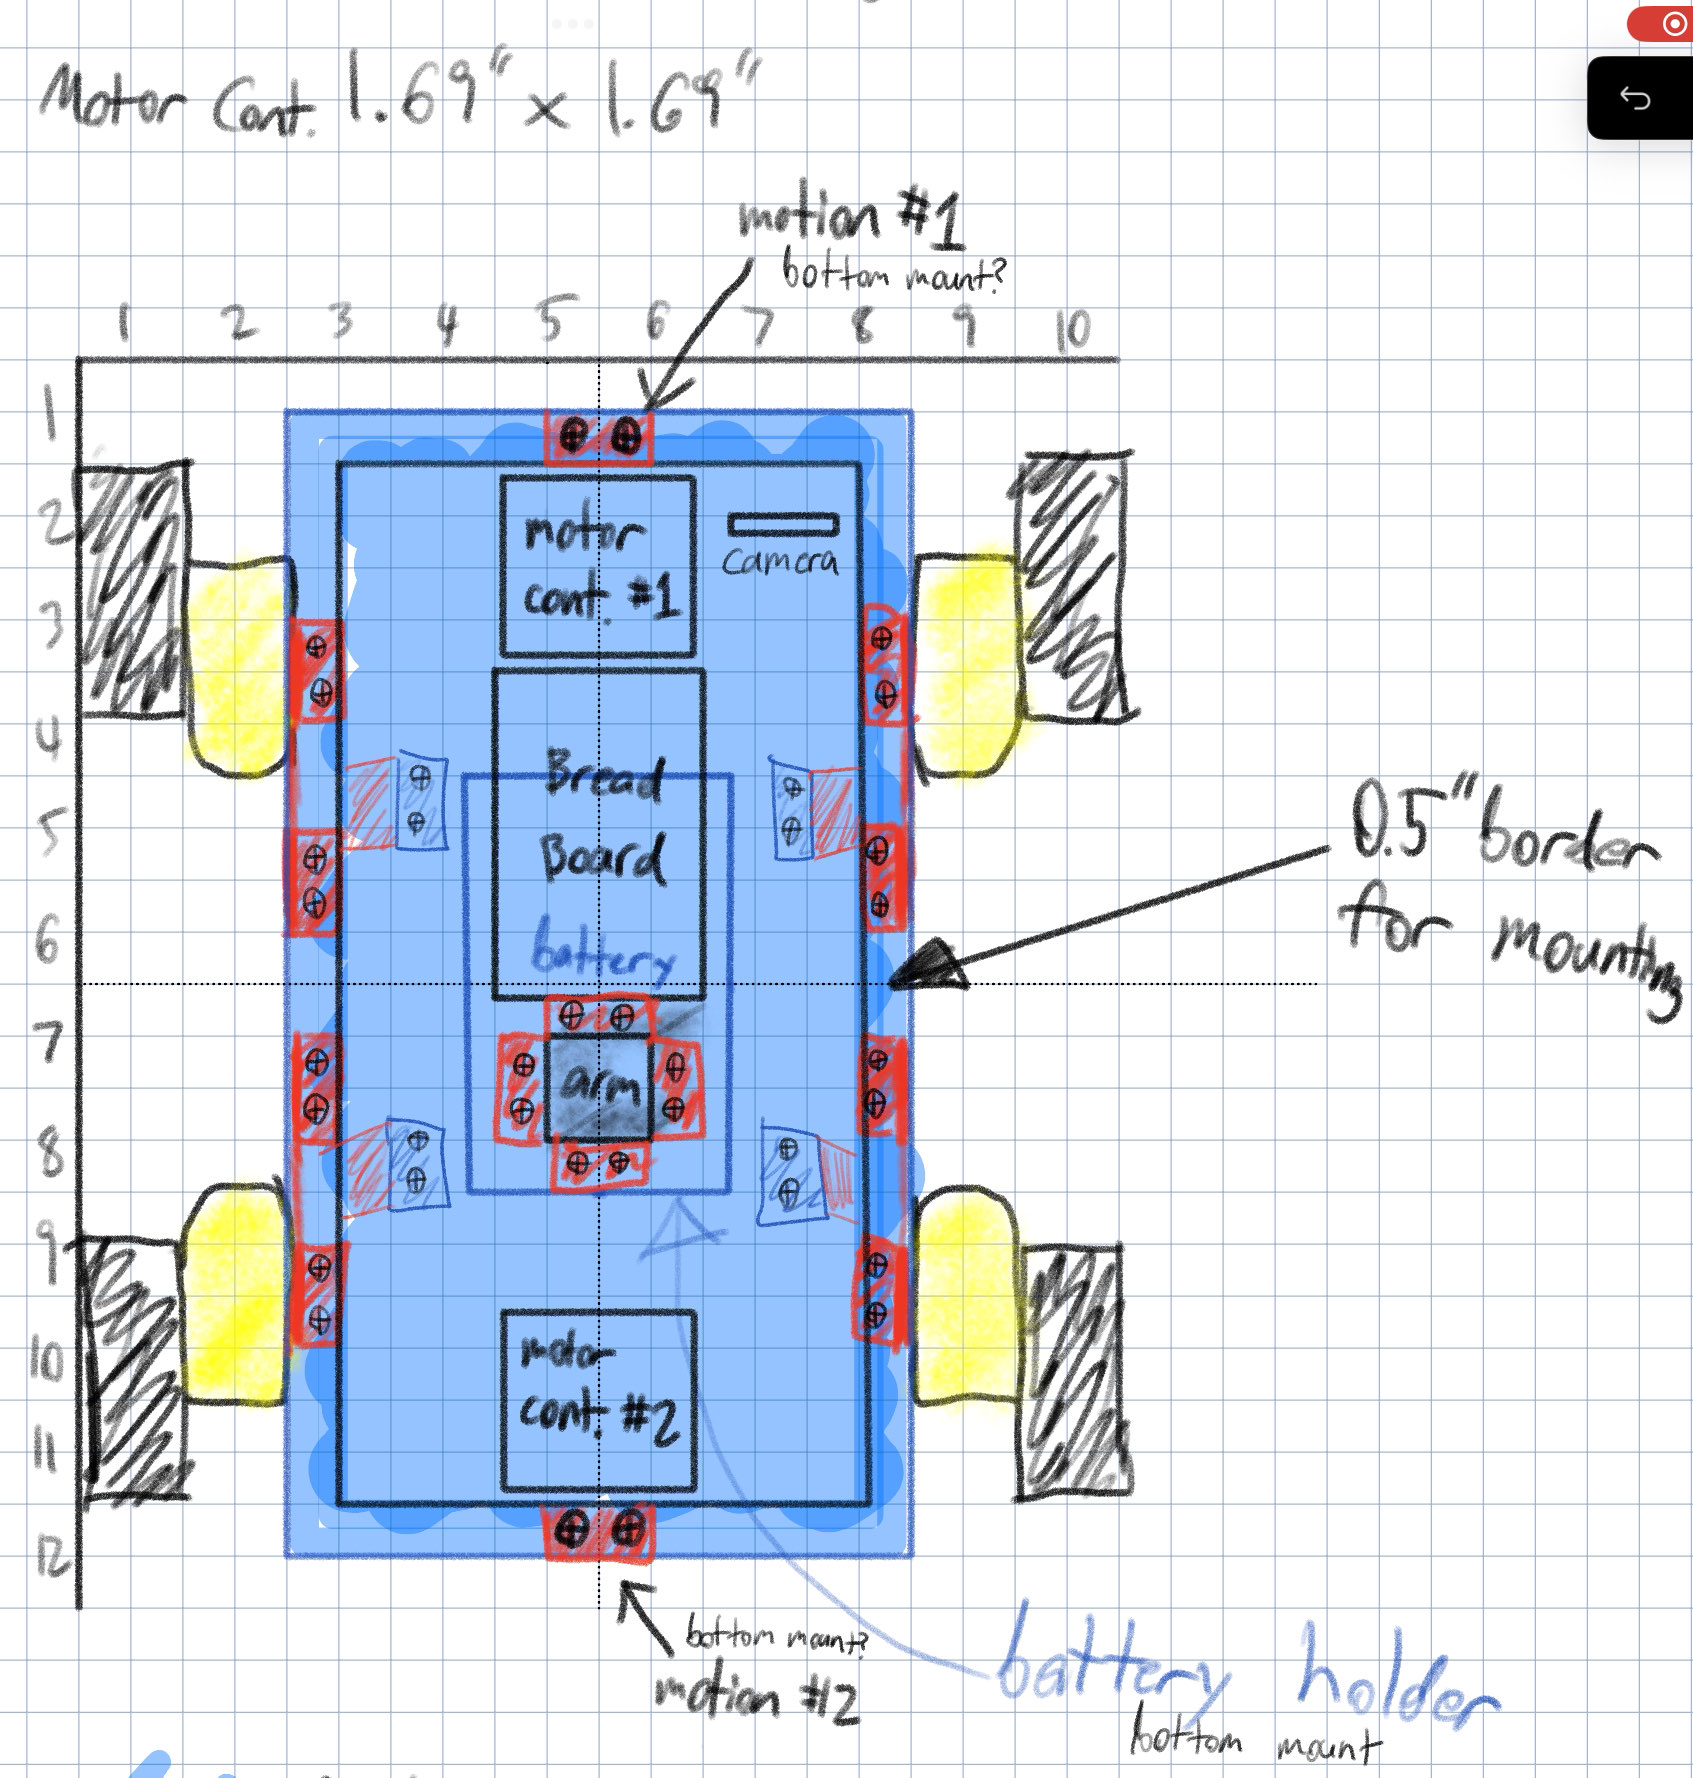 Motor Cont. 1.69" x 1.69"
motion #1
bottom mount?
1 2 3 4 5 6 7 8 9 10
1
2
3
4
5
6
7
8
9
10
11
12
motor
cont. #1
camera
Bread
Board
battery
arm
motor
cont. #2
0.5" border
for mounting
bottom mount?
motion #2
battery holder
bottom mount